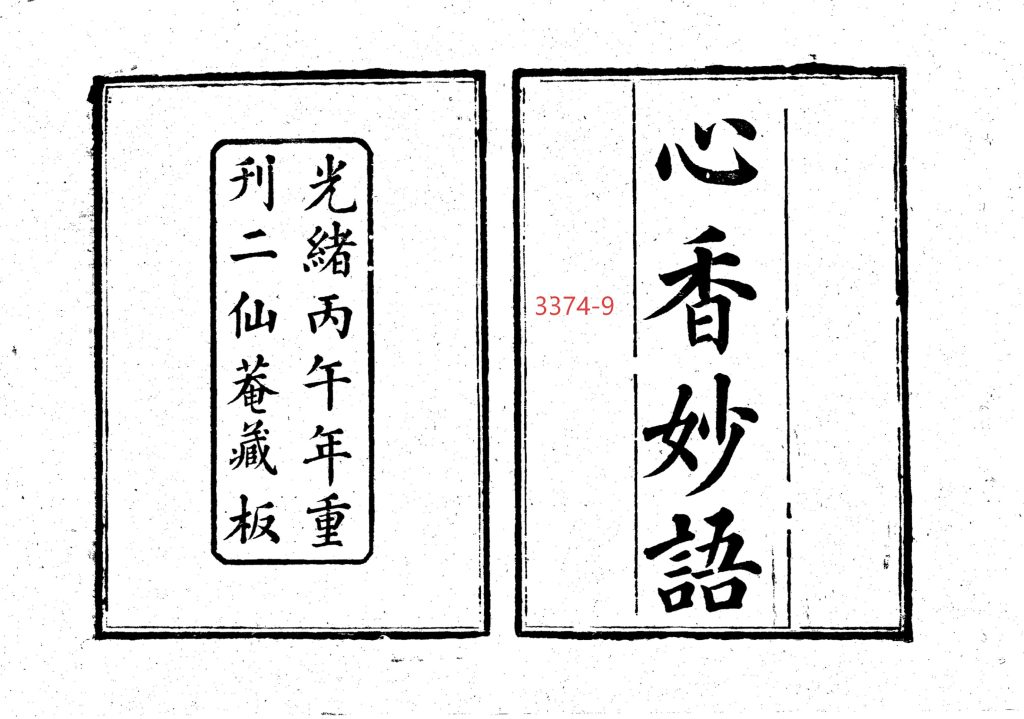 心香妙語
3374-9
光緒丙午年重
刊二仙菴藏板